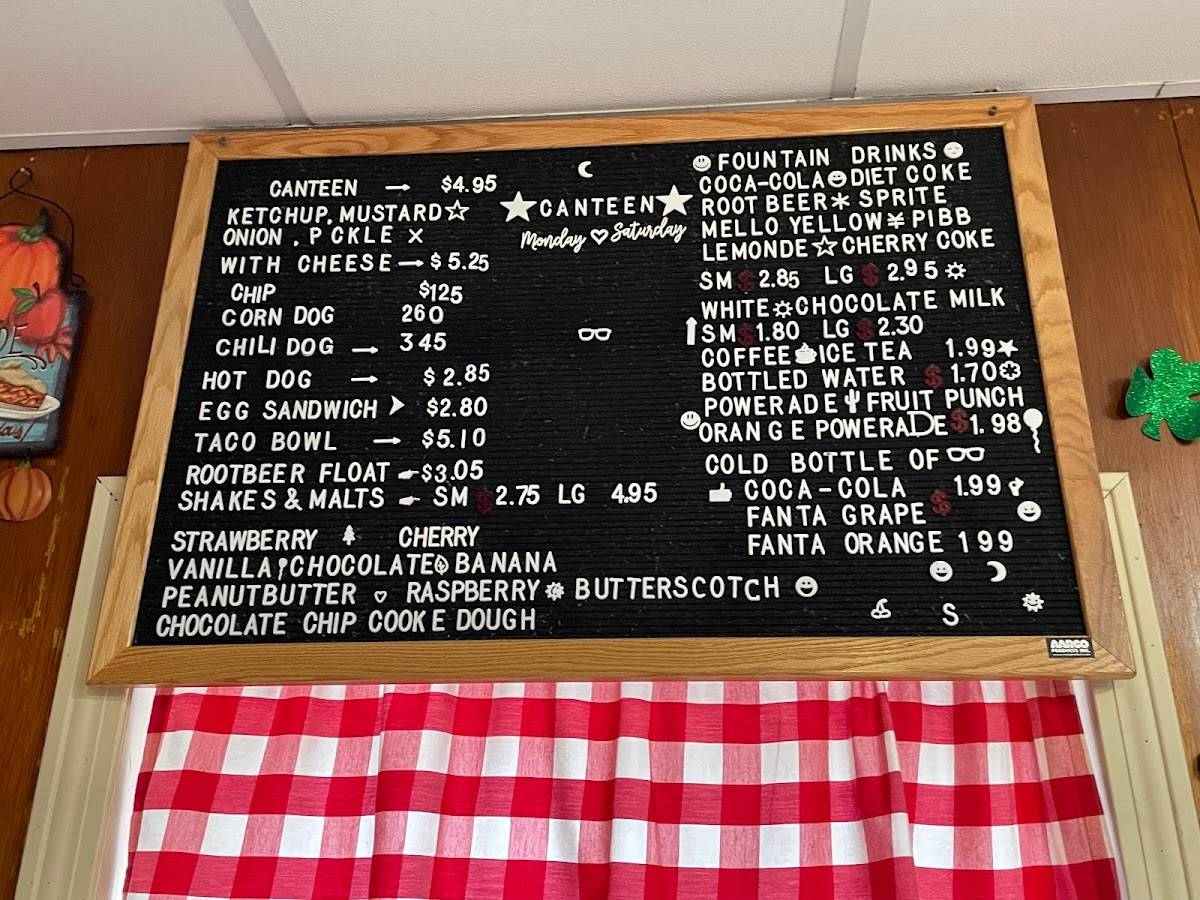 CANTEEN → $4.95
KETCHUP, MUSTARD☆
ONION . P CKLE X
WITH CHEESE→$5.25
CHIP $125
CORN DOG 260
CHILI DOG → 345
HOT DOG → $2.85
EGG SANDWICH $2.80
TACO BOWL → $5.10
ROOTBEER FLOAT $3.05
SHAKES & MALTS SM $2.75 LG 4.95
STRAWBERRY CHERRY
VANILLA CHOCOLATE BANANA
PEANUTBUTTER ♡ RASPBERRY BUTTERSCOTCH
CHOCOLATE CHIP COOK E DOUGH
★CANTEEN★
Monday ♡ Saturday
FOUNTAIN DRINKS
COCA-COLA DIET COKE
ROOT BEER* SPRITE
MELLO YELLOW¥PIBB
LEMONDE☆CHERRY COKE
SM $2.85 LG $2.95
WHITE CHOCOLATE MILK
SM $1.80 LG $2.30
COFFEE ICE TEA 1.99★
BOTTLED WATER $1.70
POWERADE FRUIT PUNCH
ORANGE POWERADE $1.98
COLD BOTTLE OF
COCA-COLA $1.99
FANTA GRAPE
FANTA ORANGE 199
S
AARCO
PRODUCTS INC.